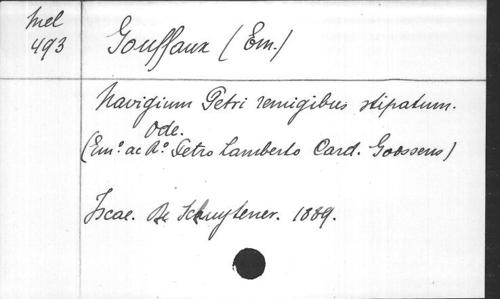 Mel
493
Gouffaux (Em.)
Navigium Petri remigibus stipatum.
Ode.
(Em.º ac R.º Petro Lamberto Card. Goossens)
Iscae. De Schuytener. 1889.